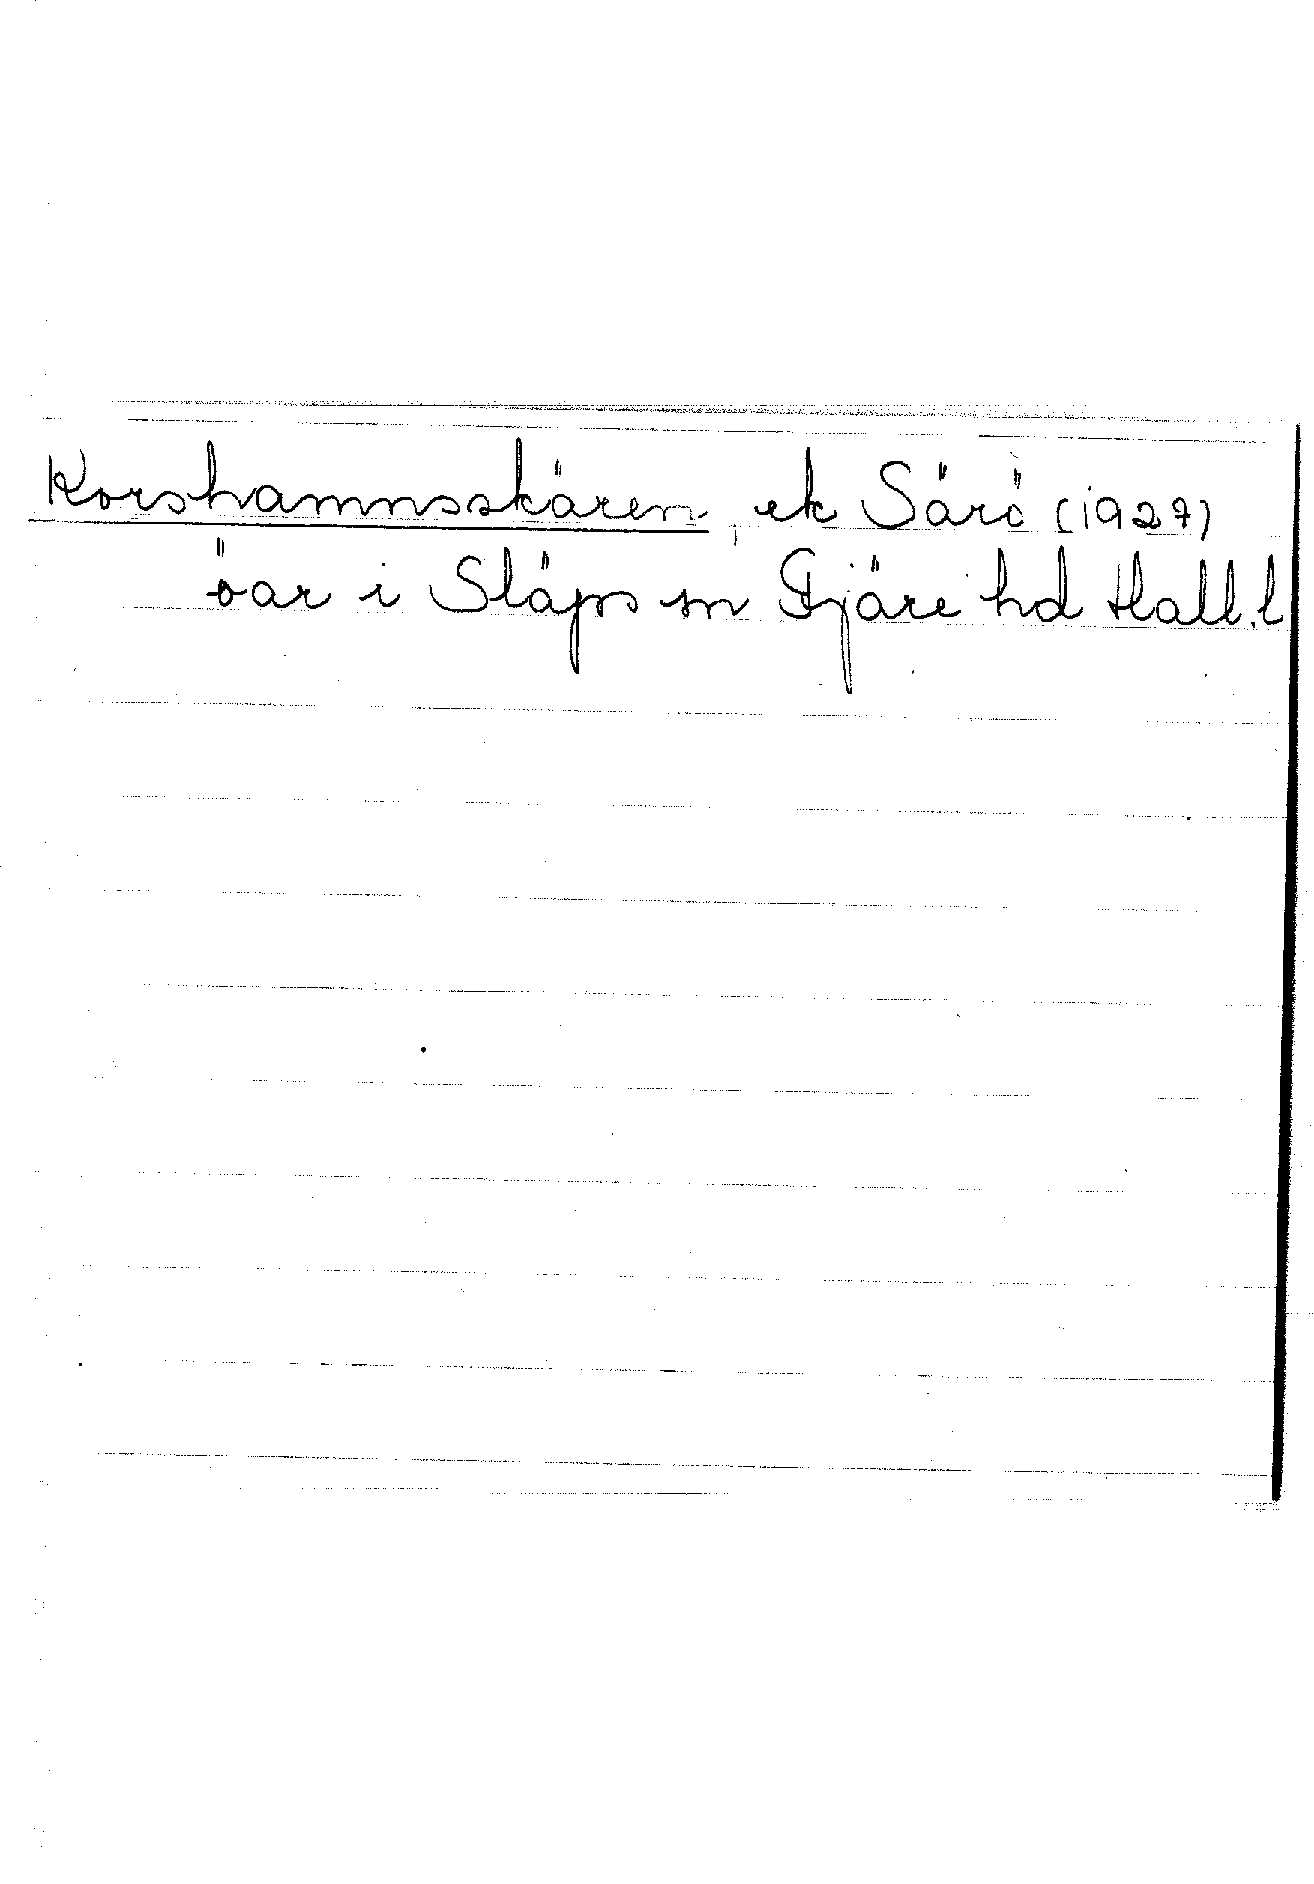 Korshamnsskären, ek Särö (1927)
öar i Släps sn Fjäre hd Hall. l